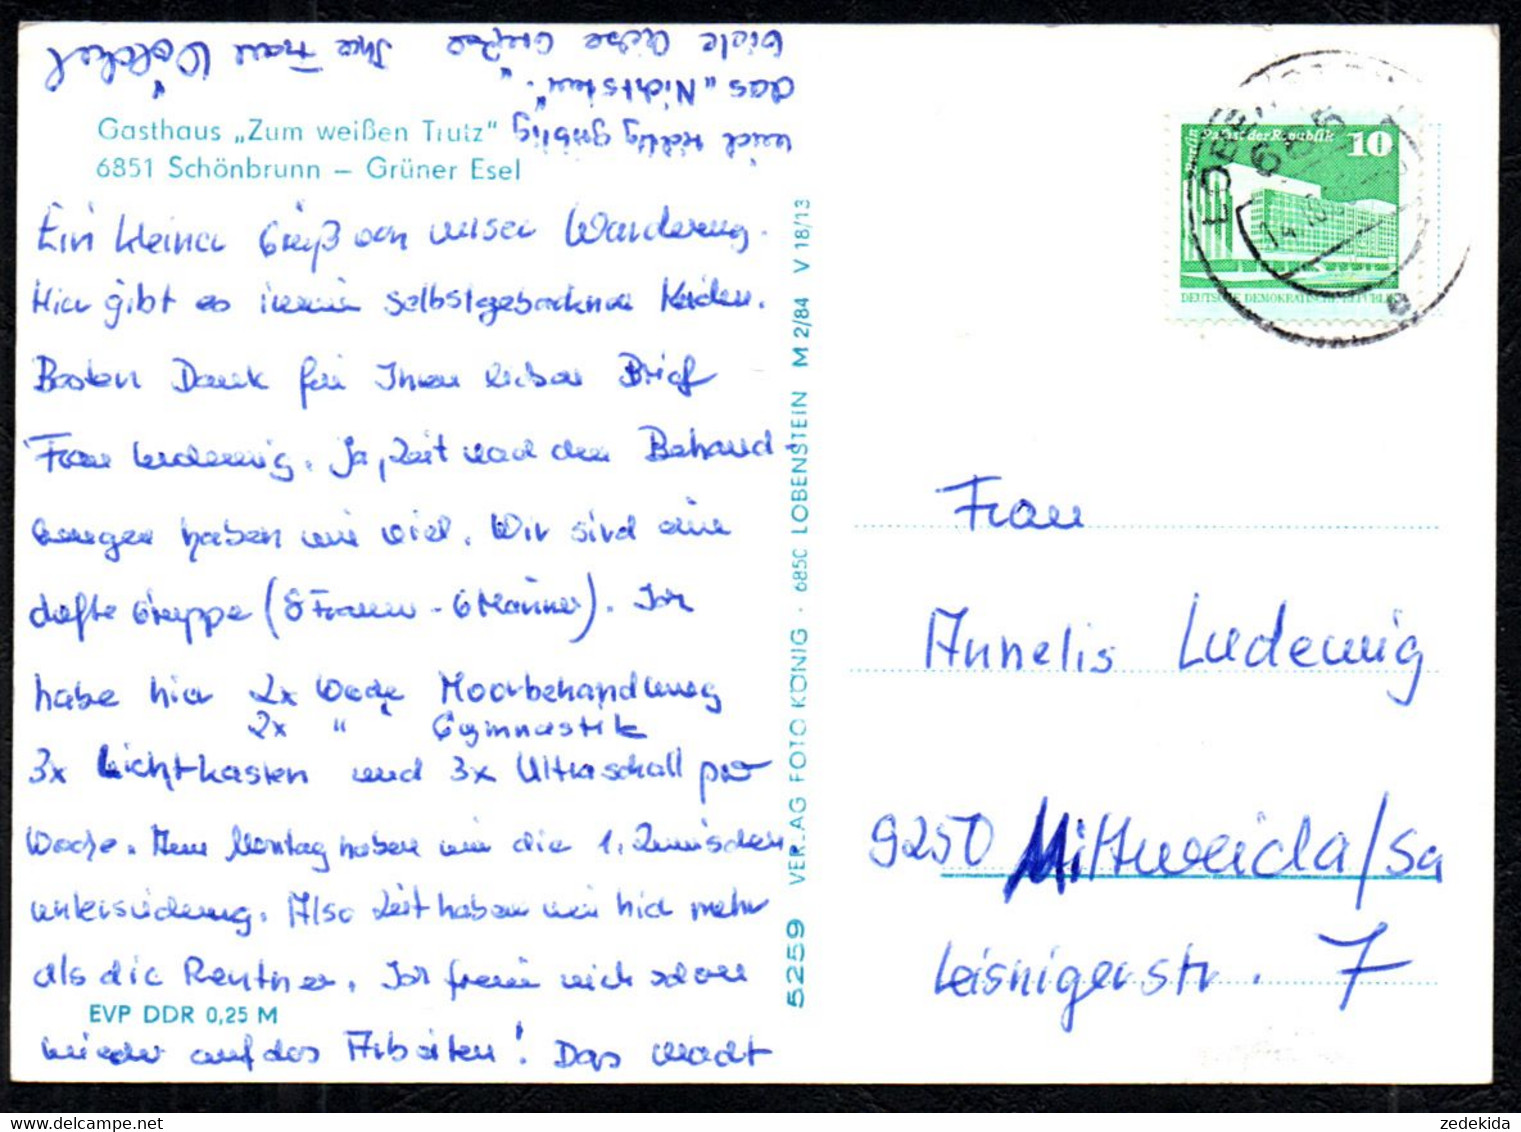 Gasthaus „Zum weißen Trutz"
6851 Schönbrunn – Grüner Esel
Ein kleiner Gruß von unser Wanderung.
Hier gibt es immer selbstgebackenen Kuchen.
Besten Dank für Ihren lieben Brief
Frau Ludewig. Ja, Zeit nach den Behand-
lungen haben wir viel. Wir sind eine
dufte Gruppe (8 Frauen - 6 Männer). Ich
habe hier 2x Woche Moorbehandlung
2x " Gymnastik
3x Lichtkasten und 3x Ultraschall pro
Woche. Am Montag haben wir die 1. Zwischen
untersuchung. Also Zeit haben wir hier mehr
als die Rentner. Ich freue mich schon
wieder auf das Arbeiten! Das macht
mich richtig
das „Nichtstun".
Viele liebe Grüße Ihre Frau
EVP DDR 0,25 M
5259 VERLAG FOTO KÖNIG · 685C LOBENSTEIN M 2/84 V 18/13
Berlin Palast der Republik 10
DEUTSCHE DEMOKRATISCHE REPUBLIK
685
Frau
Annelis Ludewig
9250 Mittweida/Sa
Leisnigerstr. 7
zedekida